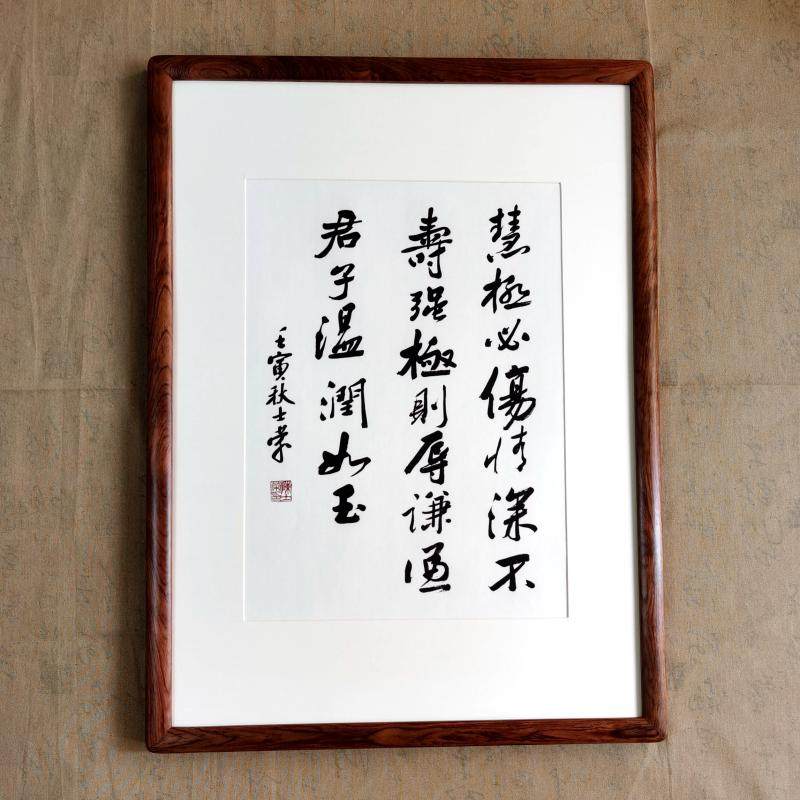 慧極必傷情深不
壽强極則辱謙謙
君子溫潤如玉
壬寅秋士榮